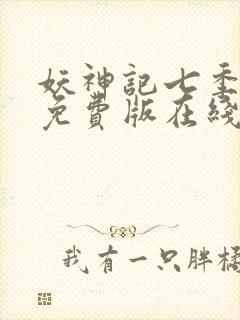 妖神記七季
免費版在綫
我有一只胖橘